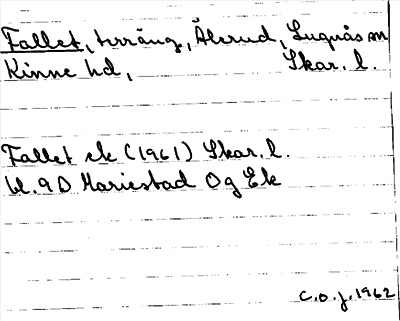 Fallet, terräng, Älerud, Lugnås sn
Kinne hd, Skar. l.
Fallet ek (1961) Skar. l.
bl. 9 D Mariestad Og Ek
C.O.J. 1962